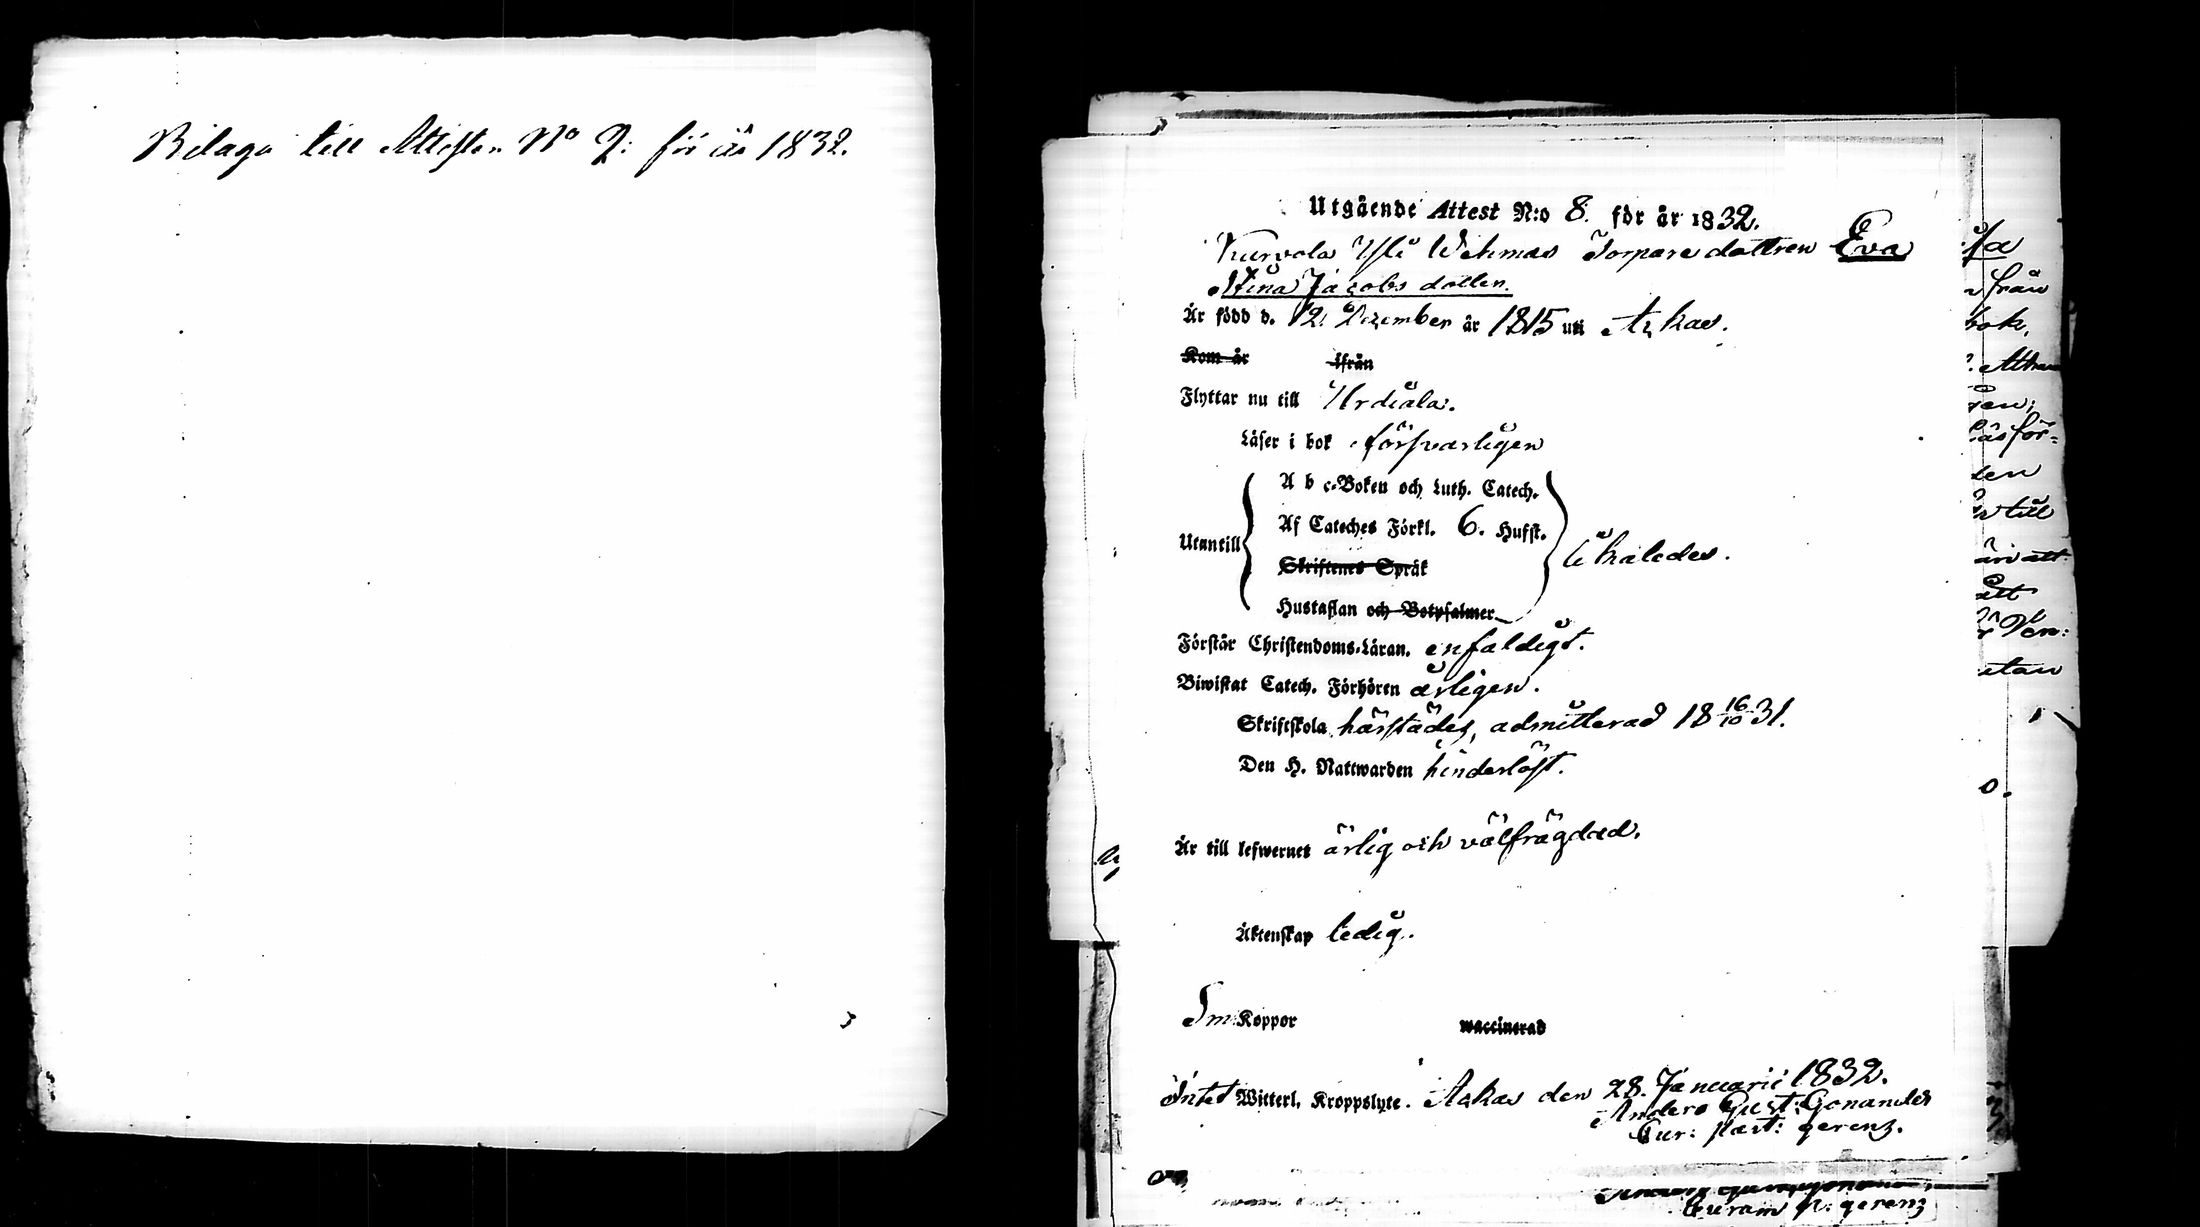 Bilaga till Attesten No 7: för år 1832.
Utgående Attest N:o 8. för år 1832.
Kurvola Yli Wehmas Torpare dottren Eva
Stina Jacobs dotter.
Är född d. 12 December år 1815 uti Ackas.
Kom år ifrån
Flyttar nu till Urdiala.
Läser i bok försvarligen
A b c-Boken och Luth. Catech.
Af Cateches Förkl. 6. Hufst.
Utantill likaledes.
Skriftenes Språk
Hustaflan och Botpsalmer
Förstår Christendoms-Läran. enfaldigt.
Biwistat Catech. Förhören årligen.
Skriftskola härstädes, admitterad 18 16/10 31.
Den H. Nattwarden hinderlöst.
Är till lefwernet ärlig och välfrägdad.
Äktenskap ledig.
Sm Koppor waccinerad
Intet Witterl. Kroppslyte. Ackas den 28. Januarii 1832.
Anders Gust: Gonander
Cur: past: gerens.
från
bok,
för=
till
att
utan
gerens